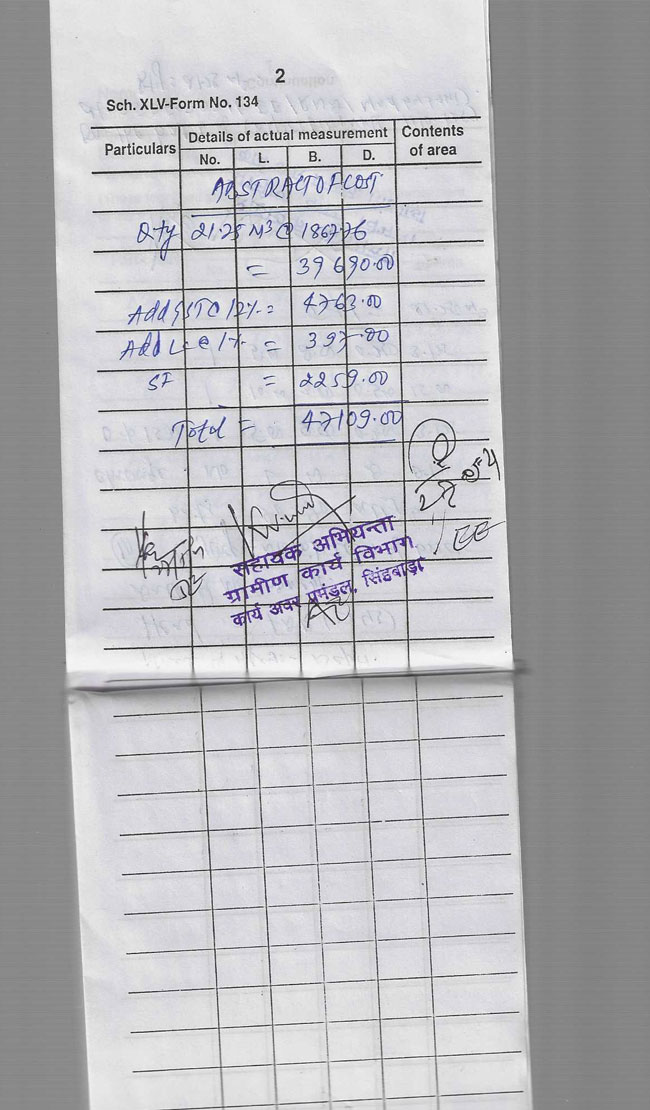 2
Sch. XLV-Form No. 134
Particulars Details of actual measurement Contents of area
No. L. B. D.
ABSTRACT OF COST
Qty 21.25 M³ @ 1867.76
= 39690.00
Add GST @ 12% = 4763.00
Add L.C @ 1% = 397.00
SF = 2259.00
Total = 47109.00
EE
सहायक अभियन्ता
ग्रामीण कार्य विभाग
कार्य अवर प्रमंडल, सिंहवाड़ा
AE